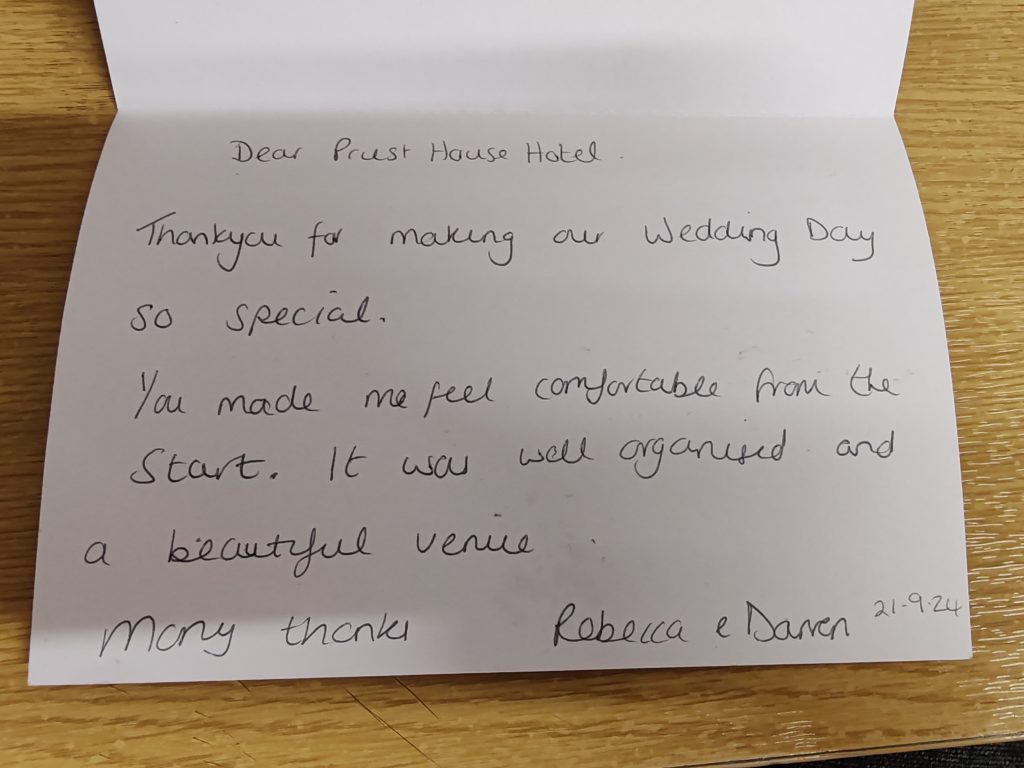 Dear Prust House Hotel.
Thankyou for making our Wedding Day
so special.
You made me feel comfortable from the
Start. It was well organised and
a beautiful venue.
Many thanks Rebecca & Darren 21-9-24